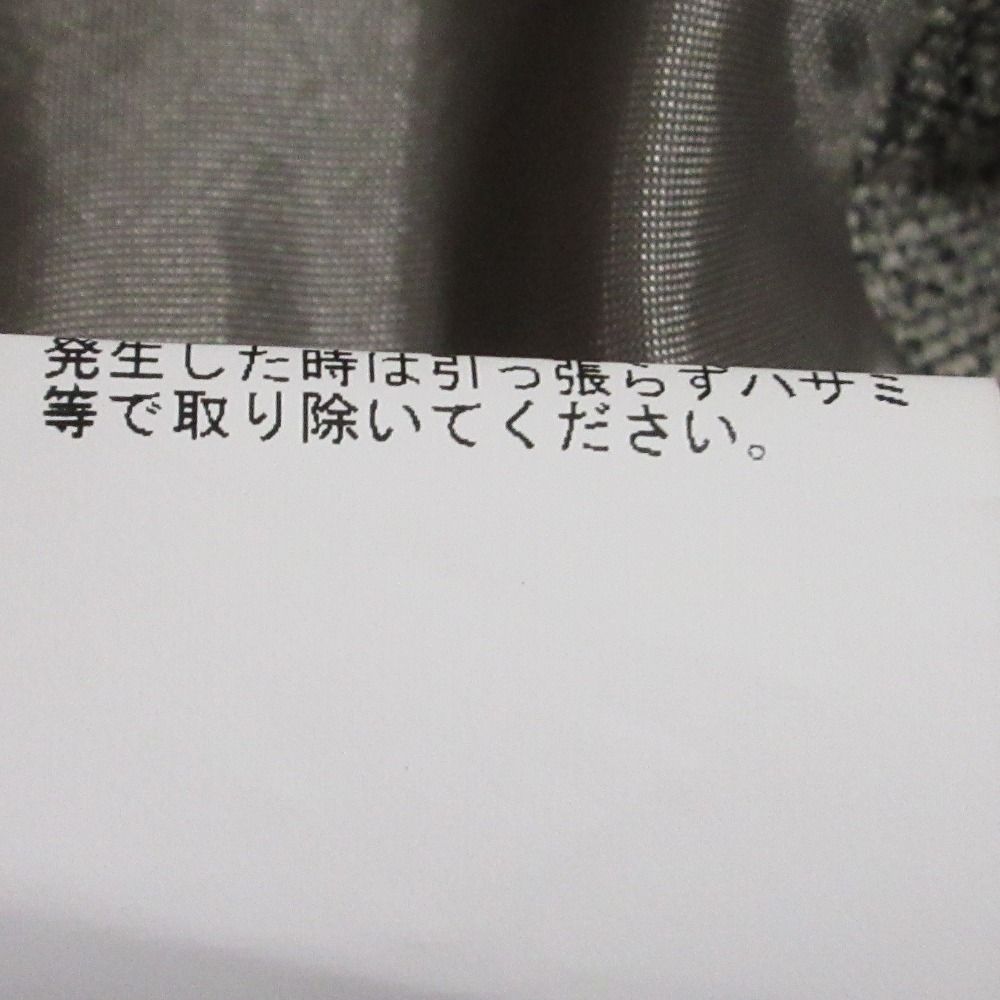 発生した時は引っ張らずハサミ
等で取り除いてください。